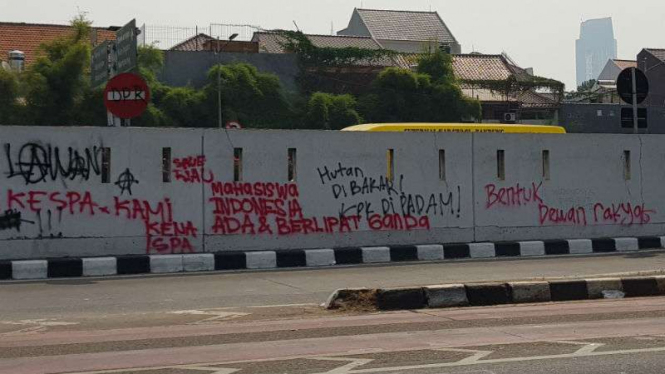 DPR
LAWAN
KESPA - KAMI
KENA
ISPA
SAVE
RIAU
MAHASISWA
INDONESIA
ADA & BERLIPAT GANDA
Hutan
DI BAKAR,
KPK DI PADAM!
BENTUK
DEWAN RAKYAT